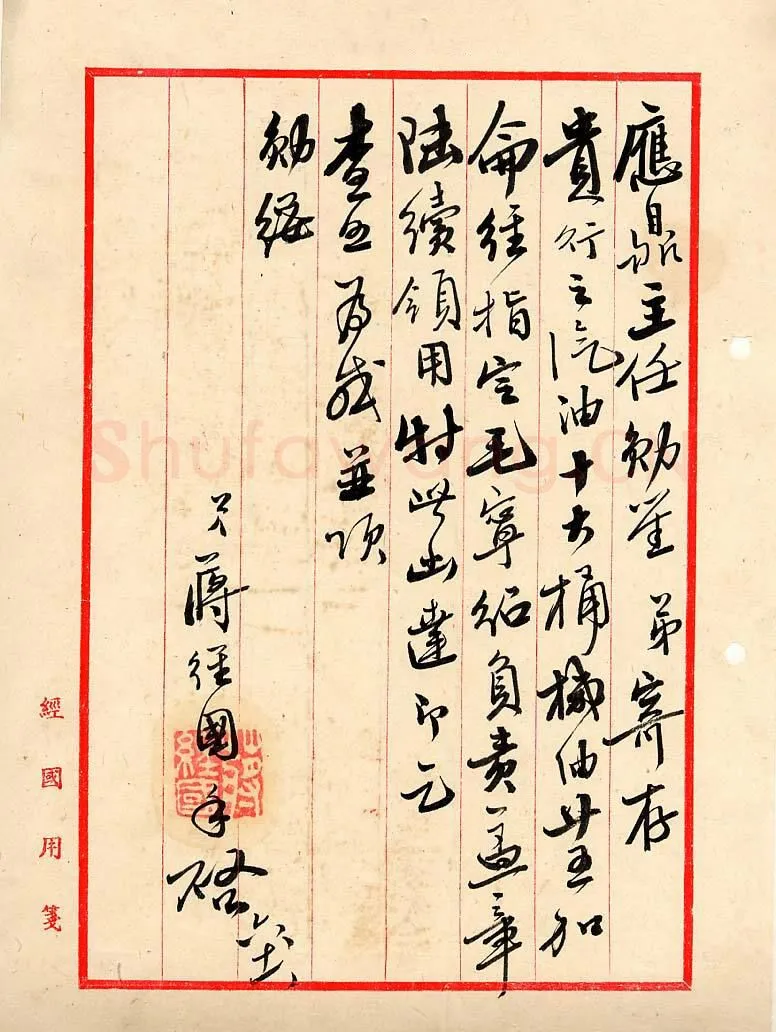 應鼎主任勛鑒 弟寄存
貴行之汽油十六桶機油廿五加
侖經指定毛寧紹負責蓋章
陸續領用特此函達即乞
查照為感並頌
勛綏
弟蔣經國手啓 六
蔣經國
經國用箋